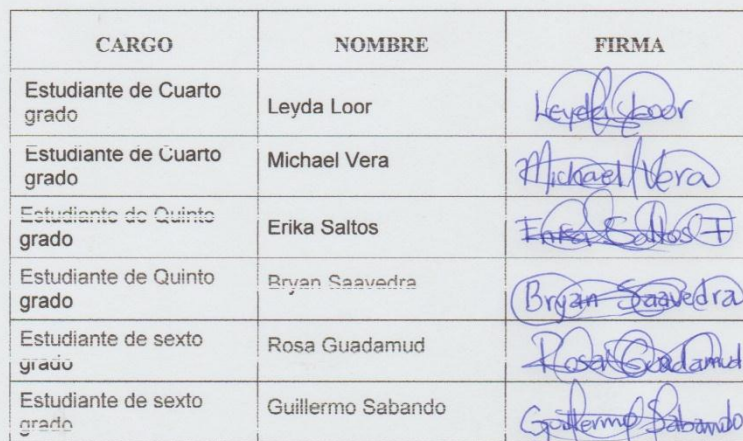 CARGO NOMBRE FIRMA
Estudiante de Cuarto
grado
Leyda Loor
Leyda Loor
Estudiante de Cuarto
grado
Michael Vera
Michael Vera
Estudiante de Quinto
grado
Erika Saltos
Erika Saltos F
Estudiante de Quinto
grado
Bryan Saavedra
Bryan Saavedra
Estudiante de sexto
grado
Rosa Guadamud
Rosa Guadamud
Estudiante de sexto
grado
Guillermo Sabando
Guillermo Sabando